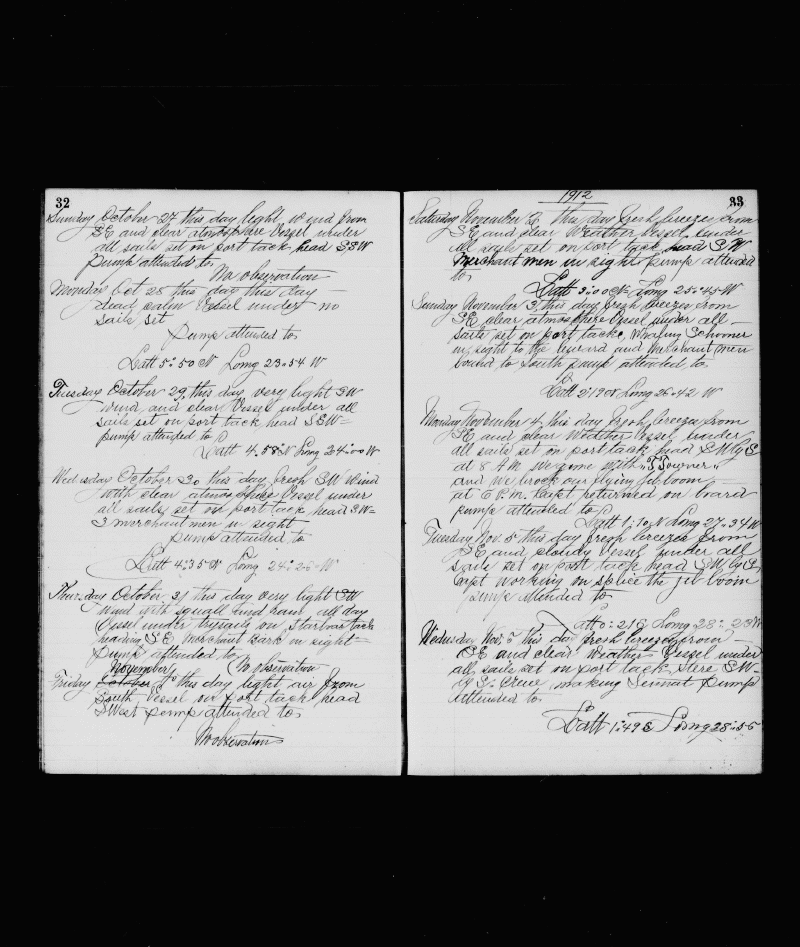 32
Sunday October 27 this day light wind from
SE and clear atmosfere Vessel under
all sails set on port tack head SSW
pump attended to
No observation
Monday Oct 28 this day this day
dead calm Vessel under no
sails set
pump attended to
Latt 5:50 N Long 23:54 W
Tuesday October 29 this day very light SW
wind and clear Vessel under all
sails set on port tack head SSW
pump attended to
Latt 4.58 N Long 24:00 W
Wednesday October 30 this day fresh SW wind
with clear atmosfere Vessel under
all sails set on port tack head SW
3 merchant men in sight
pump attended to
Latt 4:35 N Long 24:26 W
Thursday October 31 this day very light SW
wind with squall and all day
Vessel under on starboar tack
heading SE. Merchant Bark in sight
pump attended to
No observation
November
Friday October 1st this day light air from
South Vessel on port tack head
SWest pump attended to
No observation
1912
33
Saturday November 2 this day fresh breezes from
SE and clear Weather Vessel under
all sails set on port tack head SW
Merchant men in sight pump attended
to
Latt 3:00 N Long 25:45 W
Sunday November 3 this day fresh breezes from
SE clear atmosphere Vessel under all
sails set on port tack, Whaling Schooner
in sight to the leward and Merchant men
bound to South pump attended to
Long 26:42 W
Monday November 4 this day fresh breezes from
SE and clear Weather Vessel under
all sails set on port tack head SW by S
at 8 A.M. we game with "T Towner"
and we brock our flying jib boom
at 6 P.M. Capt returned on board
pump attended to
Latt 1:10 N Long 27:34 W
Tuesday Nov. 5 this day fresh breezes from
SE and cloudy Vessel under all
sails set on port tack head SW by S
Capt working on splice the jib boom
pump attended to
Latt 0:21 S Long 28: 23 W
Wednesday Nov. this day fresh breezes from
SE and clear Weather Vessel under
all sails set on port tack, Stere SW
by S. Crew making Sennat pump
attended to
Latt 1:49 S Long 28:55